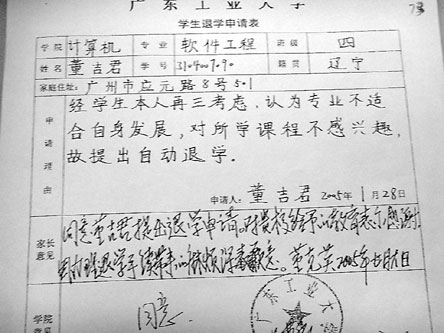 广东工业大学
73
学生退学申请表
学院 计算机 专业 软件工程 班级 四
姓名 董吉君 学号 籍贯 辽宁
家庭住址: 广州市应元路8号501
申请理由
经学生本人再三考虑,认为专业不适
合自身发展,对所学课程不感兴趣,
故提出自动退学.
申请人: 董吉君 2005年1月28日
家长意见
同意董吉君提出退学申请。对贵校给予的教育表示感谢
学院意见
同意.
广东工业大